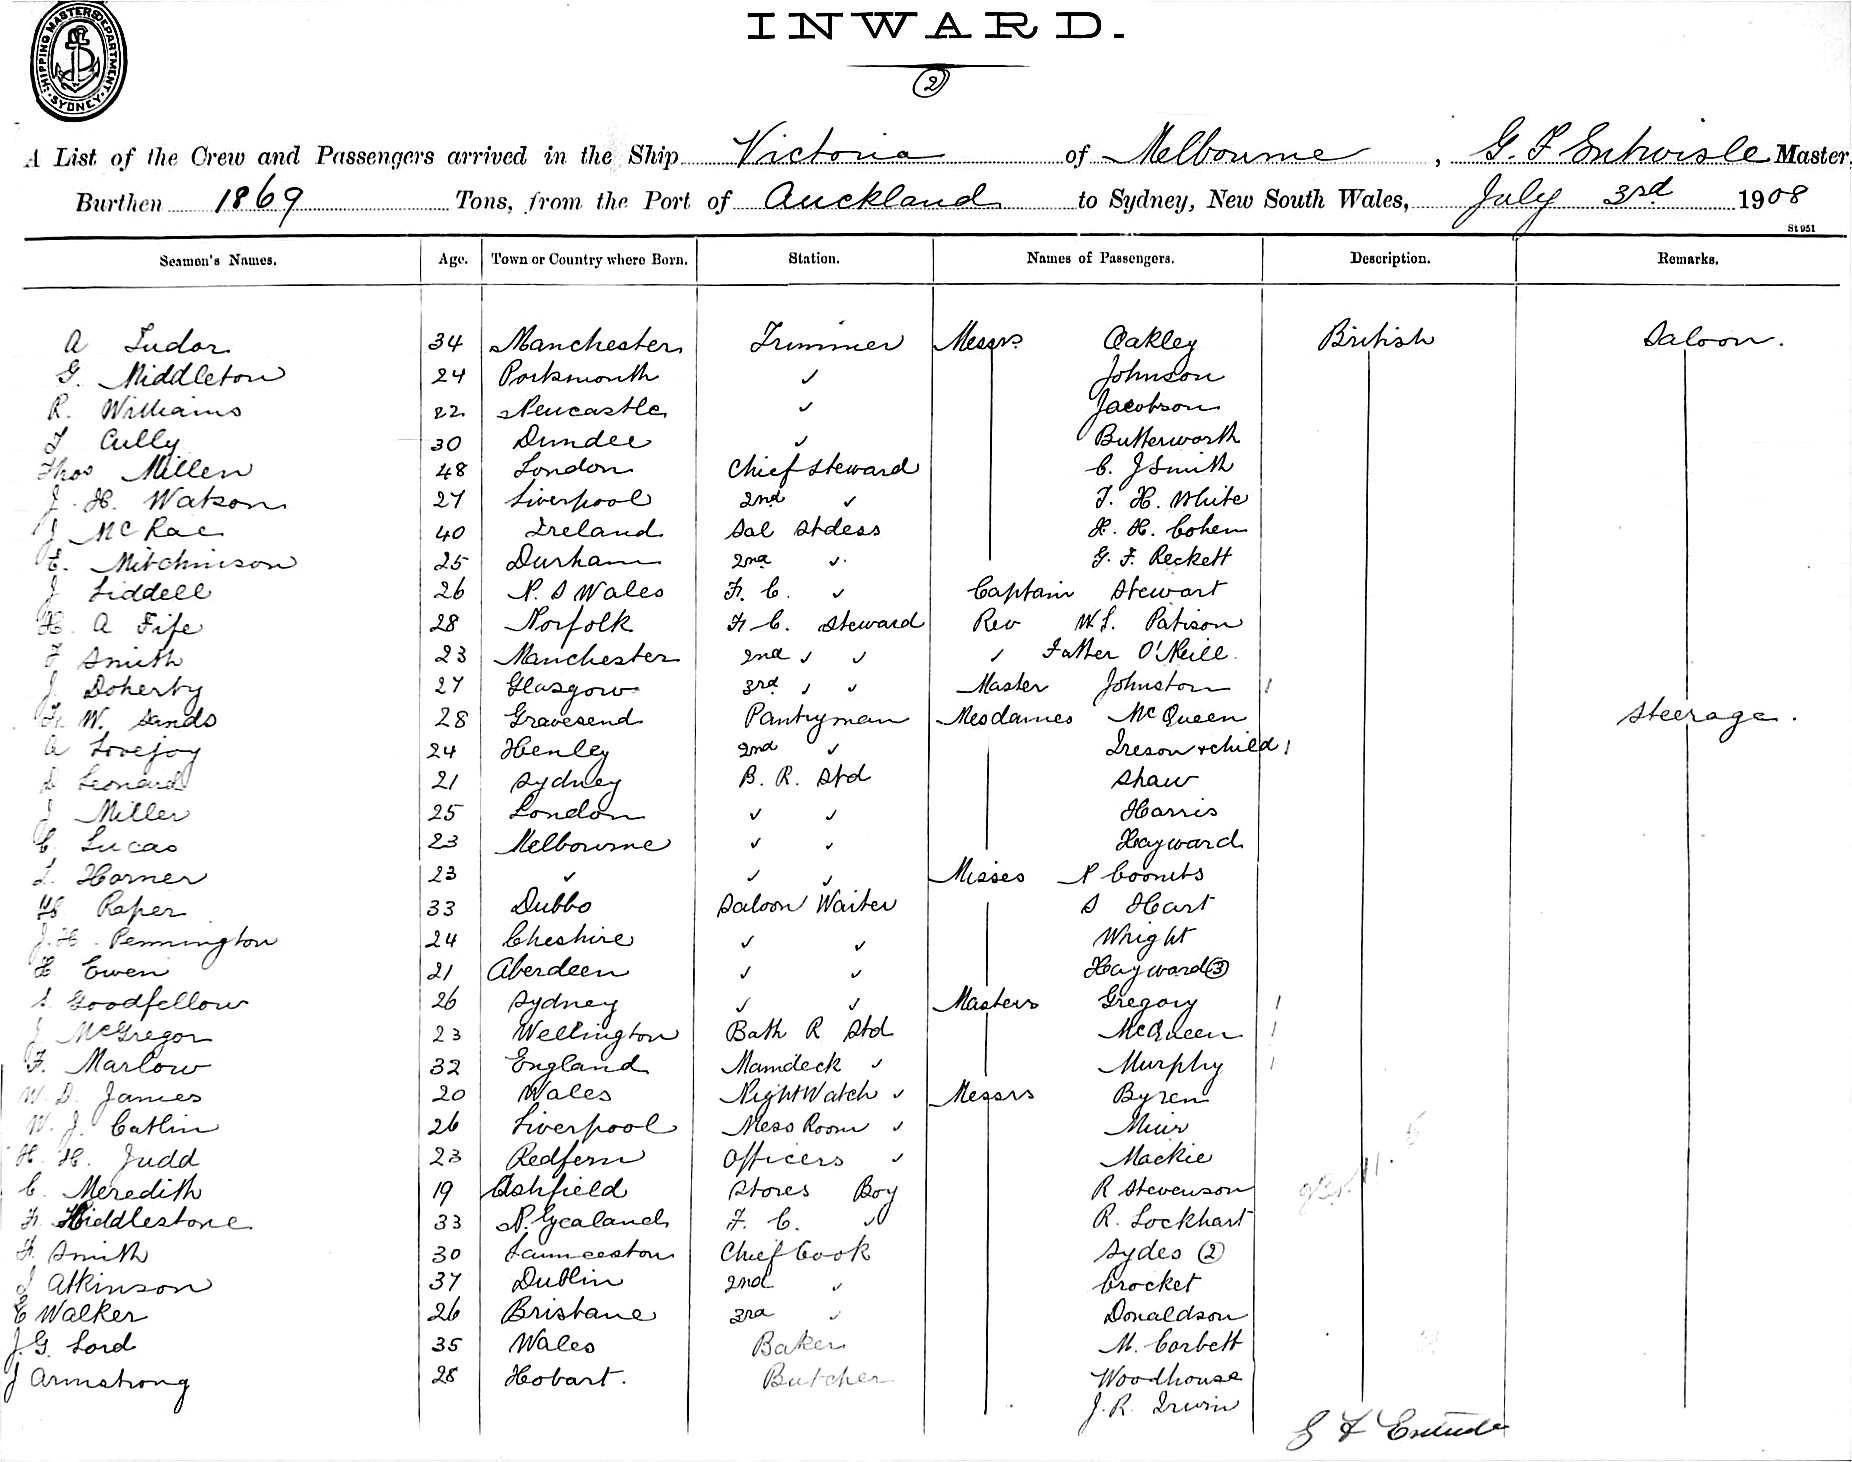 SHIPPING MASTERS DEPARTMENT SYDNEY
INWARD.
2
A List of the Crew and Passengers arrived in the Ship Victoria of Melbourne, G. F Entwisle Master,
Burthen 1869 Tons, from the Port of Auckland to Sydney, New South Wales, July 3rd 1908
St 951
Seamen's Names. Age. Town or Country where Born. Station. Names of Passengers. Description. Remarks.
A Tudor 34 Manchester Trimmer Messrs Oakley British Saloon.
G. Middleton 24 Portsmouth ✓ Johnson
R. Williams 22 Newcastle ✓ Jacobson
T Cully 30 Dundee ✓ Butterworth
Thos Millen 48 London Chief Steward C. J Smith
J. H. Watson 27 Liverpool 2nd ✓ T. H. White
J McRae 40 Ireland Sal Stdess H. H. Cohen
E. Mitchinson 25 Durham 2nd ✓ G. F. Reckett
J Liddell 26 N. S Wales F. C. ✓ Captain Stewart
H. A Fife 28 Norfolk F C. Steward Rev W. S. Patison
F Smith 23 Manchester 2nd ✓ ✓ ✓ Father O'Neill.
J. Doherty 27 Glasgow 3rd ✓ ✓ Master Johnston 1
F. W. Sands 28 Gravesend Pantryman Mesdames McQueen Steerage.
A Lovejoy 24 Henley 2nd ✓ Ireson + child 1
D Leonard 21 Sydney B. R. Std Shaw
J Miller 25 London ✓ ✓ Harris
C. Lucas 23 Melbourne ✓ ✓ Hayward
L. Horner 23 ✓ ✓ ✓ Misses N Coombs
H Raper 33 Dubbo Saloon Waiter S Hart
J. H. Pennington 24 Cheshire ✓ ✓ Wright
H Ewen 21 Aberdeen ✓ ✓ Hayward 3
S. Goodfellow 26 Sydney ✓ ✓ Masters Gregory 1
J McGregor 23 Wellington Bath R Std McQueen 1
F. Marlow 32 England Maindeck ✓ Murphy 1
W. D. James 20 Wales Night Watch ✓ Messrs Byren
W. J. Catlin 26 Liverpool Mess Room ✓ Muir
H. H. Judd 23 Redfern Officers ✓ Mackie
C. Meredith 19 Ashfield Stores Boy R Stevenson
F. Hiddlestone 33 N. Zealand F. C. ✓ R. Lockhart
F. Smith 30 Launceston Chief Cook Sydes 2
J Atkinson 37 Dublin 2nd ✓ Crocket
E Walker 26 Brisbane 3rd ✓ Donaldson
J. G. Lord 35 Wales Baker M. Corbett
J Armstrong 28 Hobart. Butcher Woodhouse
J. R. Irwin
G F